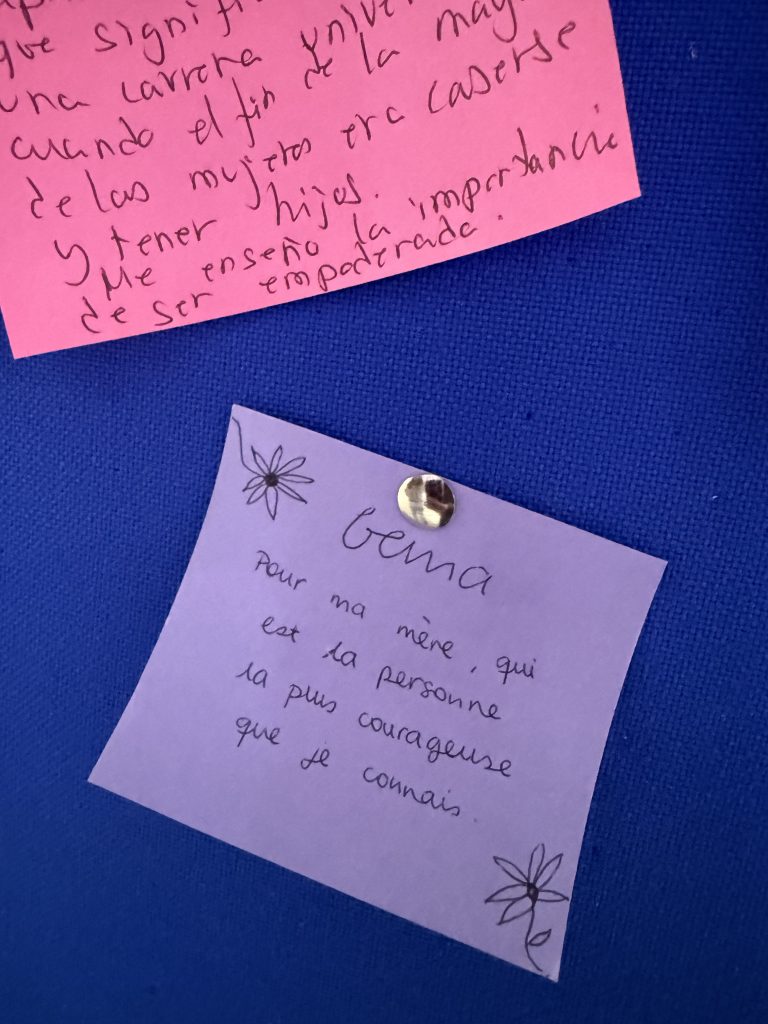 que signifi
una carrera univer
cuando el fin de la may
de las mujeres era caserse
y tener hijos.
Me enseño la importancia
de ser empoderada.
Gema
Pour ma mère, qui
est la personne
la plus courageuse
que je connais.